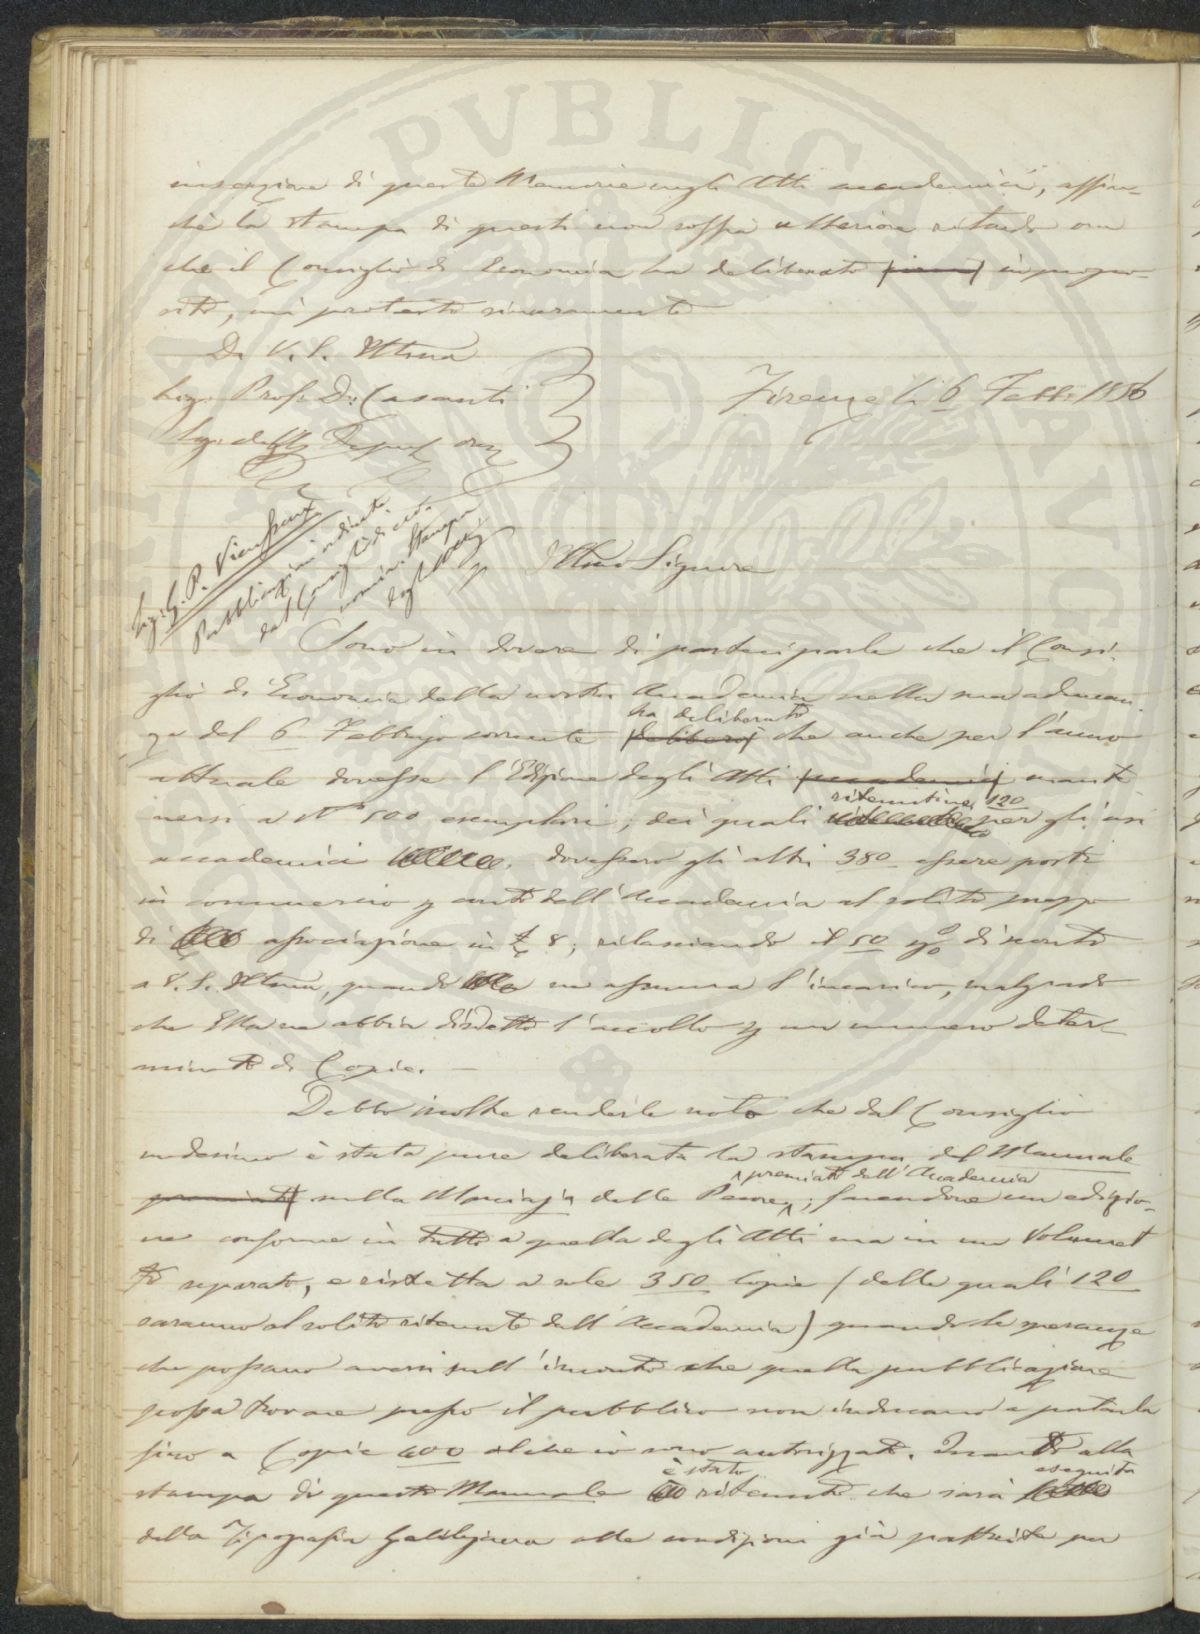 inserzione di queste Memorie negli Atti accademici, affin-
chè la stampa di questi non soffra ulteriore ritardo ora
che il Consiglio d'Economia ha deliberato in propo-
sito, mi protesto sinceramente
Di V. S. Illma
Sig. Prof. D. Casanti
Firenze li 6 Febb. 1856
Sig. G. P. Vieusseux
Pubblicazioni ordinate
dal Consiglio di eco-
nomia. Stampa
degli Atti
Illmo Signore
Sono in dovere di parteciparle che il Consi-
glio di Economia della nostra Accademia nella sua adunan-
za del 6 Febbrajo corrente deliberò ha deliberato che anche per l'anno
attuale dovesse l'Edizione degli Atti accademici mante
nersi a N.° 500 esemplari; dei quali ritenutine 120 per gli usi
accademici dovessero gli altri 380 essere posti
in commercio p conto dell'Accademia al solito prezzo
di associazione in £ 8; rilasciando il 50 p% di sconto
a V. S. Illma, quando ne assuma l'incarico, malgrado
che Ella ne abbia disdetto l'accollo p un numero deter-
minato di Copie. —
Debbo inoltre renderle noto che dal Consiglio
medesimo è stata pure deliberata la stampa del Manuale
premiato sulla Pecore ^ premiato dall'Accademia ; facendone un edizio-
ne conforme in tutto a quella degli Atti ma in un Volumet
to separato, e ristretta a sole 350 Copie (delle quali 120
saranno al solito ritenute dall'Accademia) quando le speranze
che possano aversi sull'incontro che quella pubblicazione
possa trovare presso il pubblico non inducano a portarla
fino a Copie 400 al che io sono autorizzato. Quanto alla
stampa di questo Manuale è stato ritenuto che sarà eseguita
dalla Tipografia Galilejana alle condizioni già pattuite per